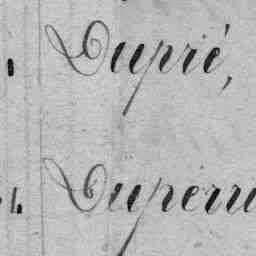 Dupié,
1. Duperr